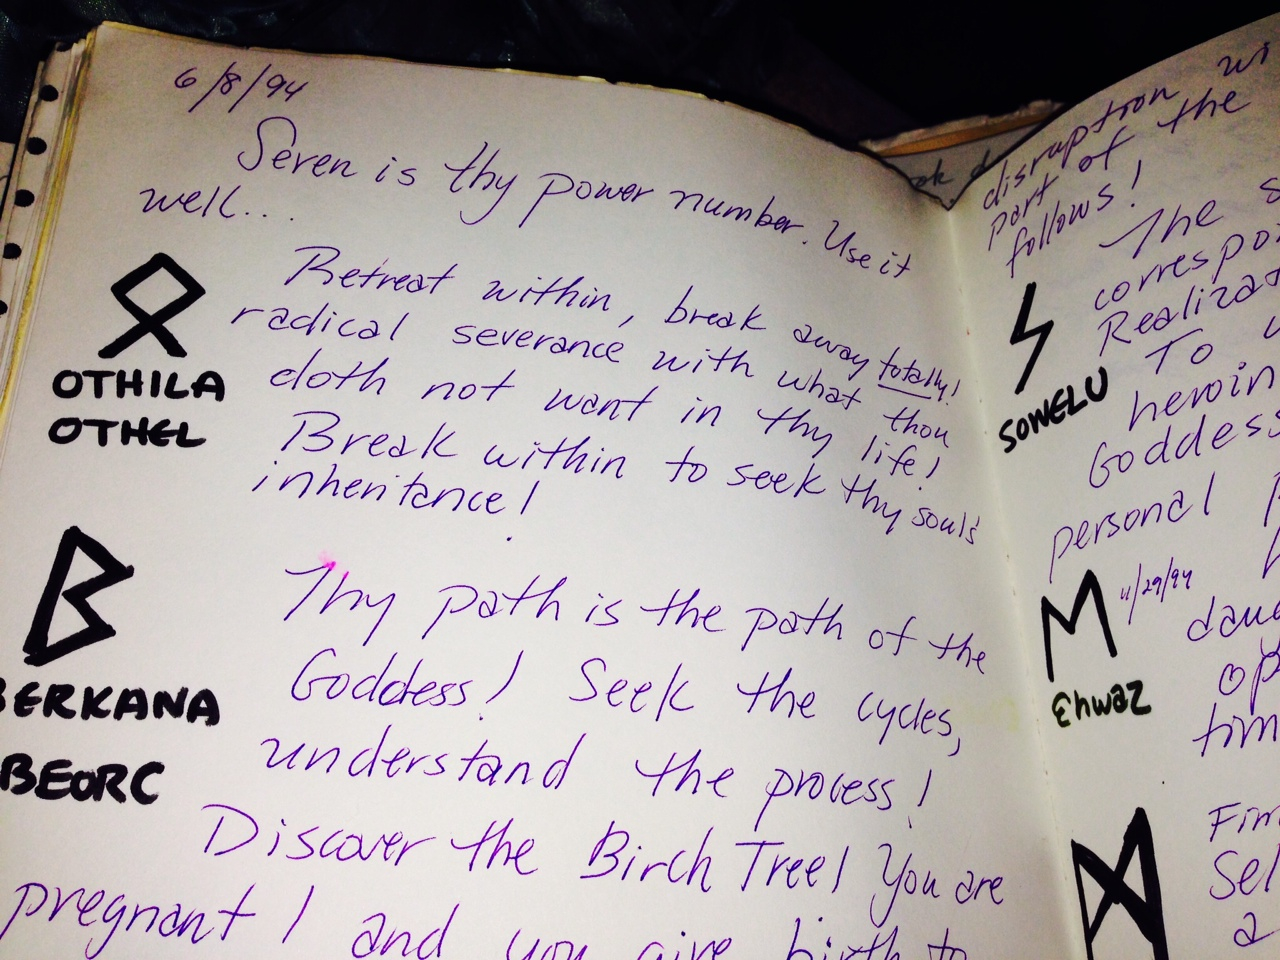 6/8/94
Seven is thy power number. Use it
well...
Retreat within, break away totally!
radical severance with what thou
doth not want in thy life!
OTHILA
OTHEL
Break within to seek thy souls'
inheritance!
Thy path is the path of the
Goddess! Seek the cycles,
understand the process!
BERKANA
BEORC
Discover the Birch Tree! You are
pregnant! and you give birth to
disruption wi
part of the
follows!
The s
correspo
Realizat
To
SOWELU
heroin
Goddess
personal
Ehwaz
dau
op
tim
Sel
a